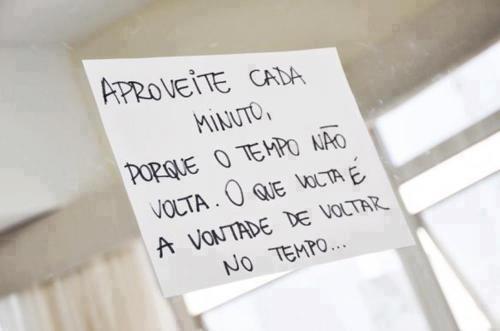 APROVEITE CADA
MINUTO,
PORQUE O TEMPO NÃO
VOLTA. O QUE VOLTA É
A VONTADE DE VOLTAR
NO TEMPO...